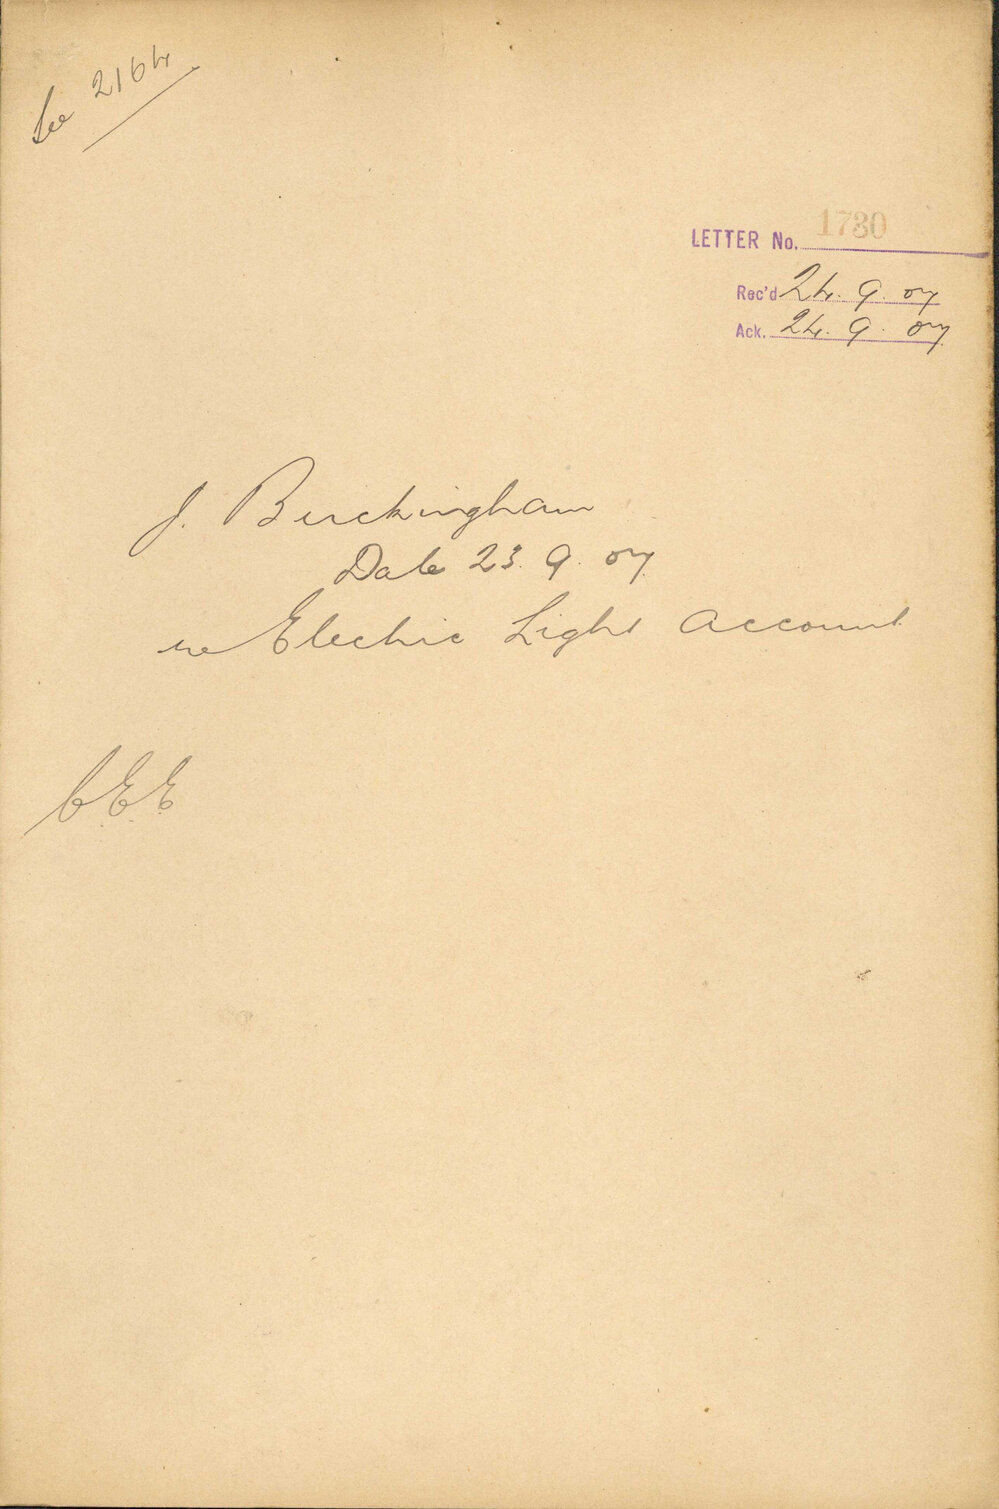 See 2164
LETTER No. 1730
Rec'd 24. 9. 07
Ack. 24. 9. 07
J. Buckingham
Date 23. 9. 07
re Electric Light Account
CEE